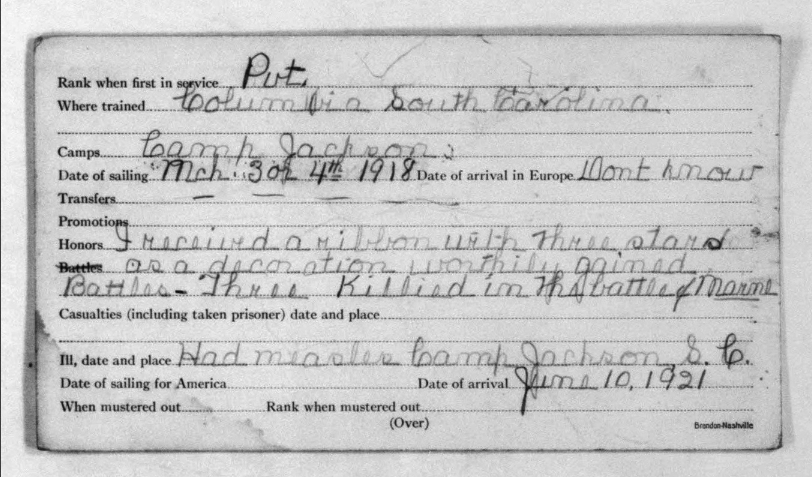 Rank when first in service Pvt.
Where trained Columbia South Carolina.
Camps Camp Jackson.
Date of sailing Mch. 3 or 4th 1918 Date of arrival in Europe Dont know
Transfers —
Promotions
Honors I received a ribbon with three stars
Battles as a decoration worthily gained
Battles - Three Killied in the battle of Marne
Casualties (including taken prisoner) date and place
Ill, date and place Had measles Camp Jackson, S. C.
Date of sailing for America Date of arrival June 10, 1921
When mustered out Rank when mustered out
(Over) Brandon-Nashville